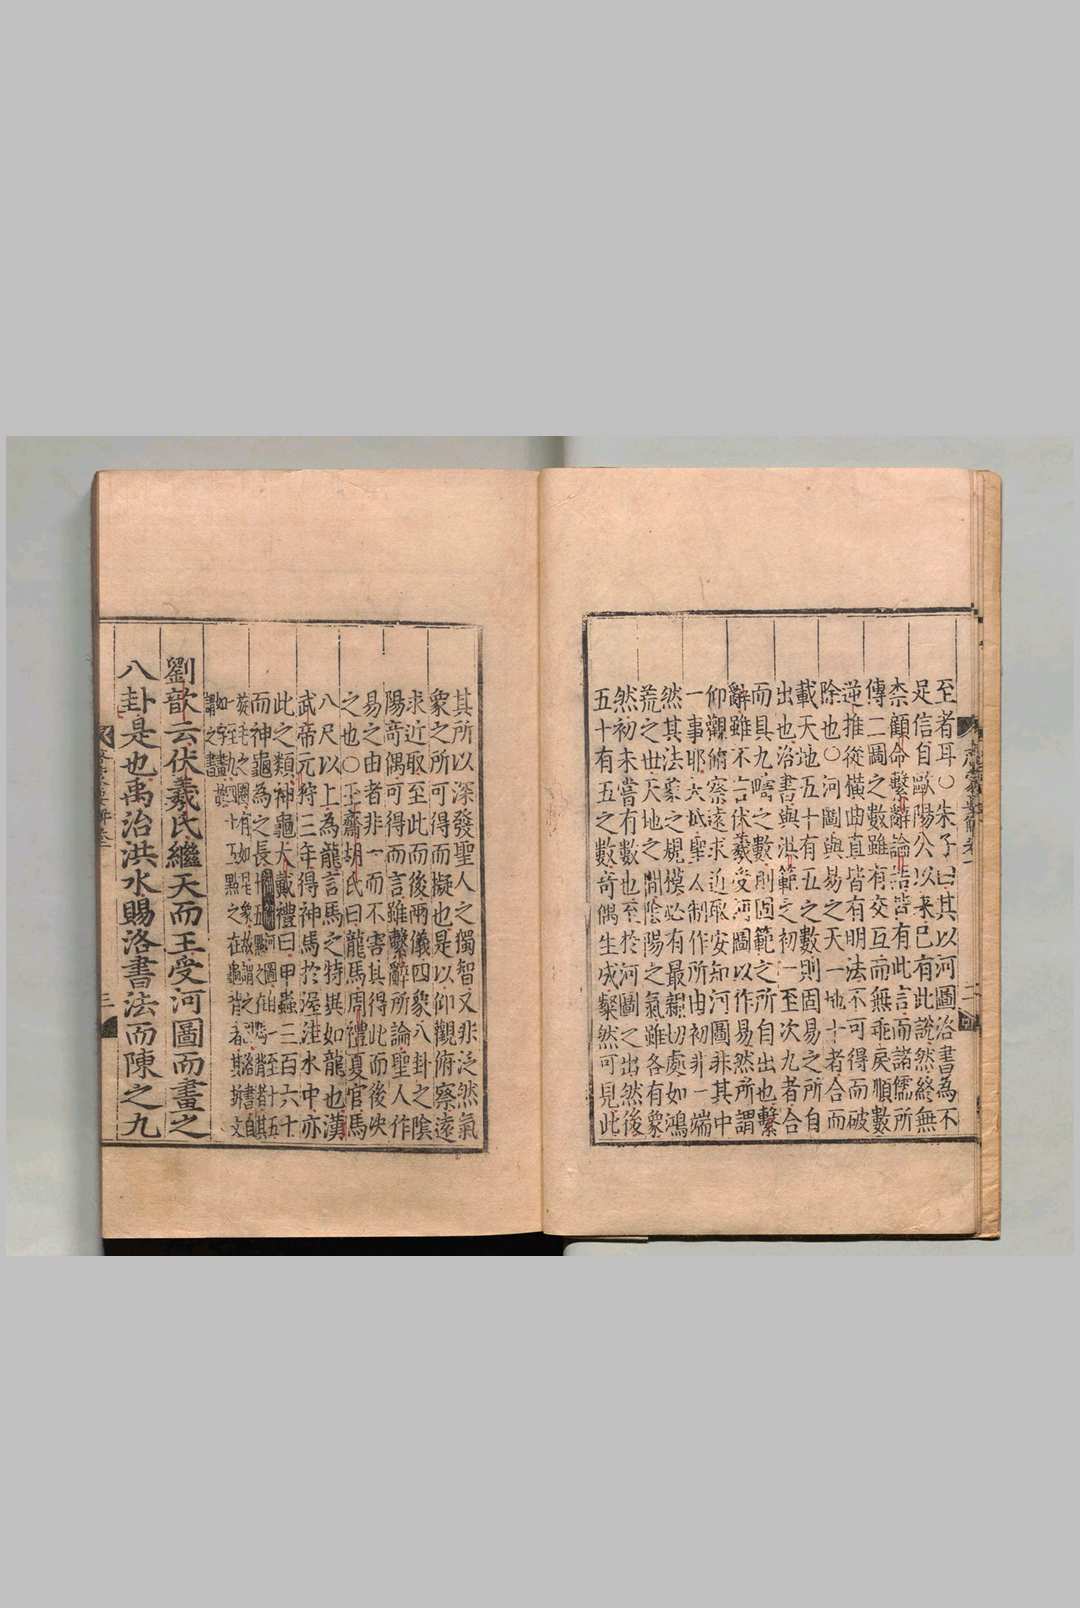 至者耳○朱子曰其以河圖洛書為不
足信自歐陽公以来已有此說然終無
柰顧命繫辭論語皆有此言而諸儒所
傳二圖之數雖有交互而無乖戾順數
逆推從横曲直皆有明法不可得而破
除也○河圖與易之天一地十者合而
載天地五十有五之數則固易之所自
出也洛書與洪範之初一至次九者合
而具九疇之數則固範之所自出也繫
辭雖不言伏羲受河圖以作易然所謂
仰觀俯察遠求近取安知河圖非其中
一事耶大抵聖人制作所由初非一端
然其法象之規模必有最親切處如鴻
荒之世天地之間陰陽之氣雖各有象
然初未嘗有數也至於河圖之出然後
五十有五之數奇偶生成粲然可見此
其所以深發聖人之獨智又非泛然氣
象之所可得而擬也是以仰觀俯察遠
求近取至此而後兩儀四象八卦之陰
陽竒偶可得而言雖繫辭所論聖人作
易之由者非一而不害其得此而後决
之也○玉齋胡氏曰龍馬周禮夏官馬
八尺以上為龍言馬之特異如龍也漢
武帝元狩三年得神馬於渥洼水中亦
此之類神龜大戴禮曰甲蟲三百六十
而神龜為之長
劉歆云伏羲氏繼天而王受河圖而畫之
八卦是也禹治洪水賜洛書法而陳之九
三